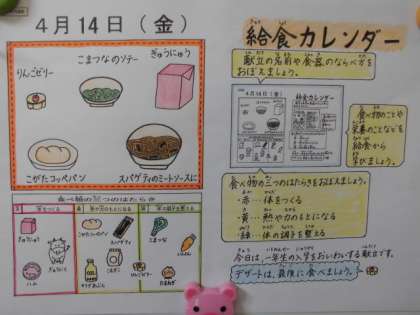 4月14日（金）
りんごゼリー
こまつなのソテー
ぎゅうにゅう
こがたコッペパン
スパゲティのミートソースに
食べ物の三つのはたらき
体をつくる
熱や力のもとになる
体の調子を整える
ぎゅうにゅう
ハム
こがたコッペパン
スパゲティ
こまつな
にんじん
りんごゼリー
たまねぎ
給食カレンダー
献立の名前や食器のならべ方を
おぼえましょう。
4月14日(金)
給食カレンダー
食べ物のことや
栄養のことなどを
給食から
学びましょう。
食べ物の三つのはたらきをおぼえましょう。
・赤…体をつくる
・黄…熱や力のもとになる
・緑…体の調子を整える
今日は、一年生の入学をおいわいする献立です。
デザートは、最後に食べましょう。